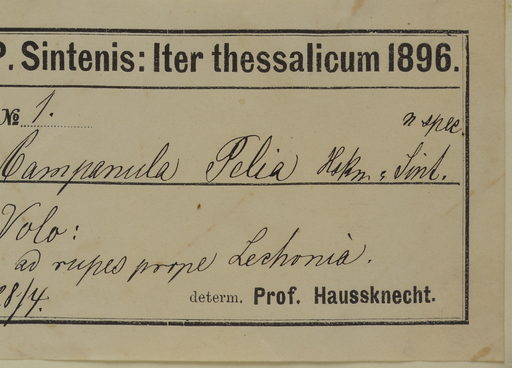 P. Sintenis: Iter thessalicum 1896.
№ 1.
n spec.
Campanula Pelia Hskn. & Sint.
Volo:
ad rupes prope Lechonià.
28/4.
determ. Prof. Haussknecht.